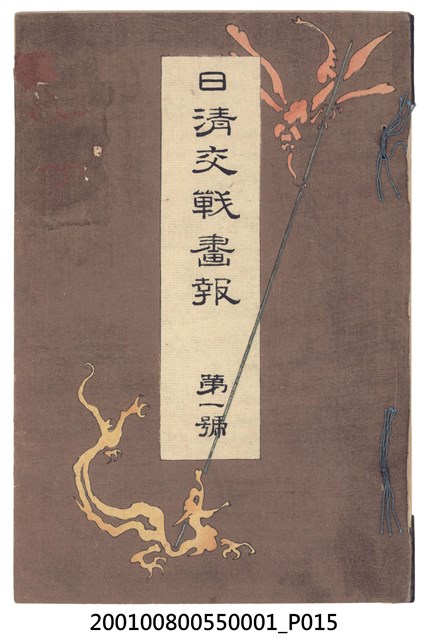 日清交戰畫報
第一號
200100800550001_P015